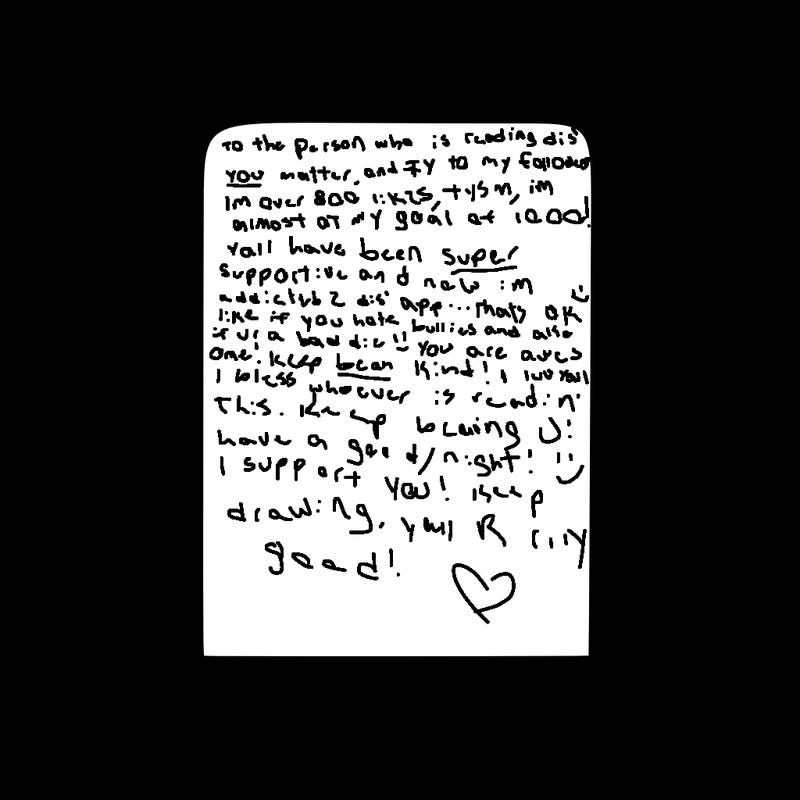 To the person who is reading dis'
you matter, and TY to my followers
Im over 800 likes, tysm, im
almost at my goal of 1000!
Yall have been super
supportive and now im
addicted 2 dis' app... thats ok :)
like if you hate bullies and also
if ur a baddie!! :) You are
one! Keep bean kind! I luv yall
I bless whoever is readin'
this. Keep being U!
have a good/night! :)
I support you! Keep
drawing, yall R rlly
good!